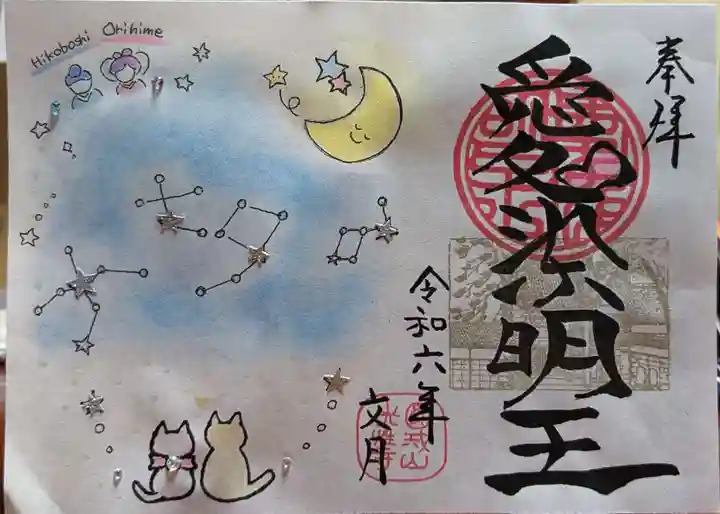 Hikoboshi Orihime
奉拝
愛染明王
令和六年
文月